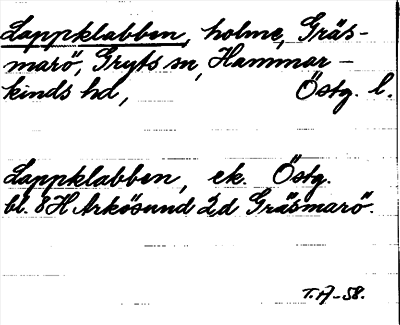 Lappklabben, holme, Gräs-
marö, Gryts sn, Hammar-
kinds hd, Östg. l.
Lappklabben, ek. Östg.
bl. 8H Arkösund 2d Gräsmarö.
T.A-58.